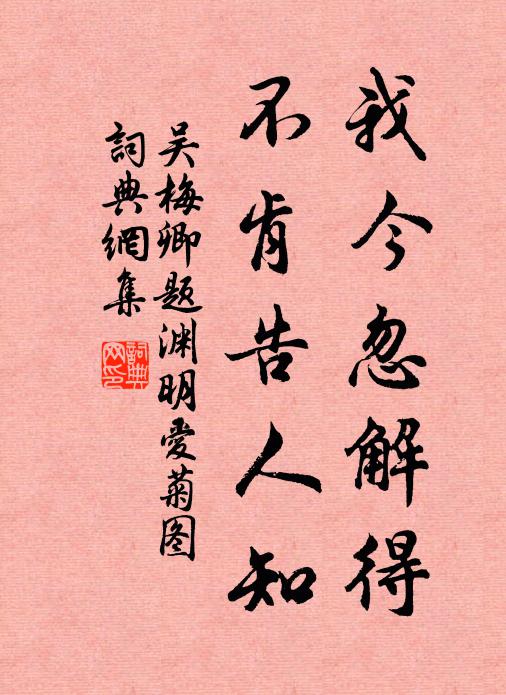 我今忽解得
不肯告人知
吴梅卿题渊明爱菊图
詞典網集
詞典網印